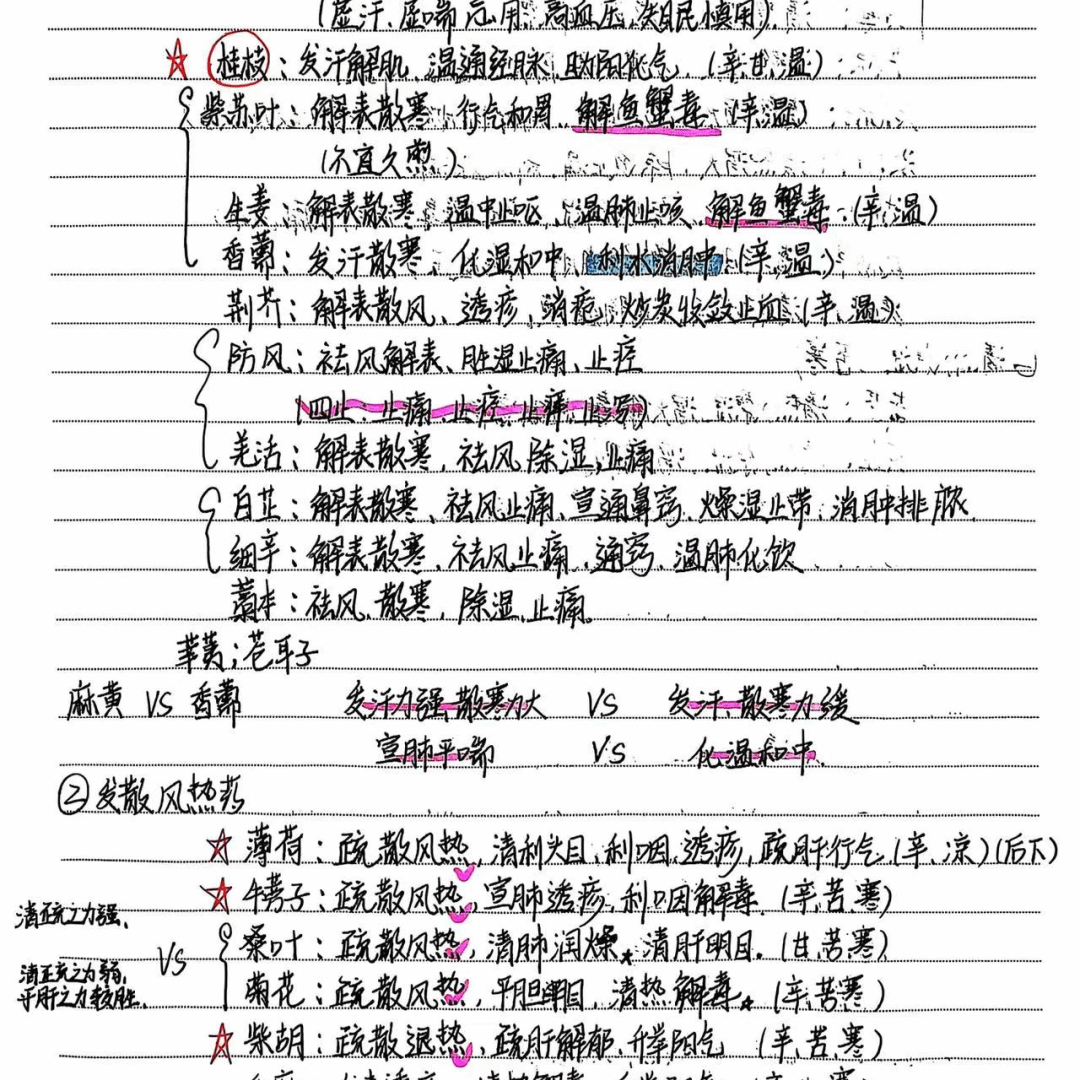 (虚汗、虚喘忌用、高血压、失眠慎用)
桂枝：发汗解肌、温通经脉、助阳化气 (辛、甘、温)
紫苏叶：解表散寒、行气和胃、解鱼蟹毒 (辛、温)
(不宜久煎)
生姜：解表散寒、温中止呕、温肺止咳、解鱼蟹毒 (辛、温)
香薷：发汗散寒、化湿和中、利水消肿 (辛、温)
荆芥：解表散风、透疹、消疮、炒炭收敛止血 (辛、温)
防风：祛风解表、胜湿止痛、止痉
(四止、止痛、止痉、止痒、止泻)
羌活：解表散寒、祛风除湿、止痛
白芷：解表散寒、祛风止痛、宣通鼻窍、燥湿止带、消肿排脓
细辛：解表散寒、祛风止痛、通窍、温肺化饮
藁本：祛风、散寒、除湿、止痛。
；苍耳子
麻黄 VS 香薷 发汗力强、散寒力大 VS 发汗、散寒力缓
宣肺平喘 VS 化温和中、
②发散风热药
薄荷：疏散风热、清利头目、利咽、透疹、疏肝行气 (辛、凉) (后下)
牛蒡子：疏散风热、宣肺透疹、利咽解毒 (辛、苦、寒)
清疏之力强、
桑叶：疏散风热、清肺润燥、清肝明目. (甘、苦、寒)
VS
清疏之力弱，
平肝之力较胜.
菊花：疏散风热、平明目、清热解毒 (辛、苦、寒)
柴胡：疏散退热、疏肝解郁、升举阳气 (辛、苦、寒)